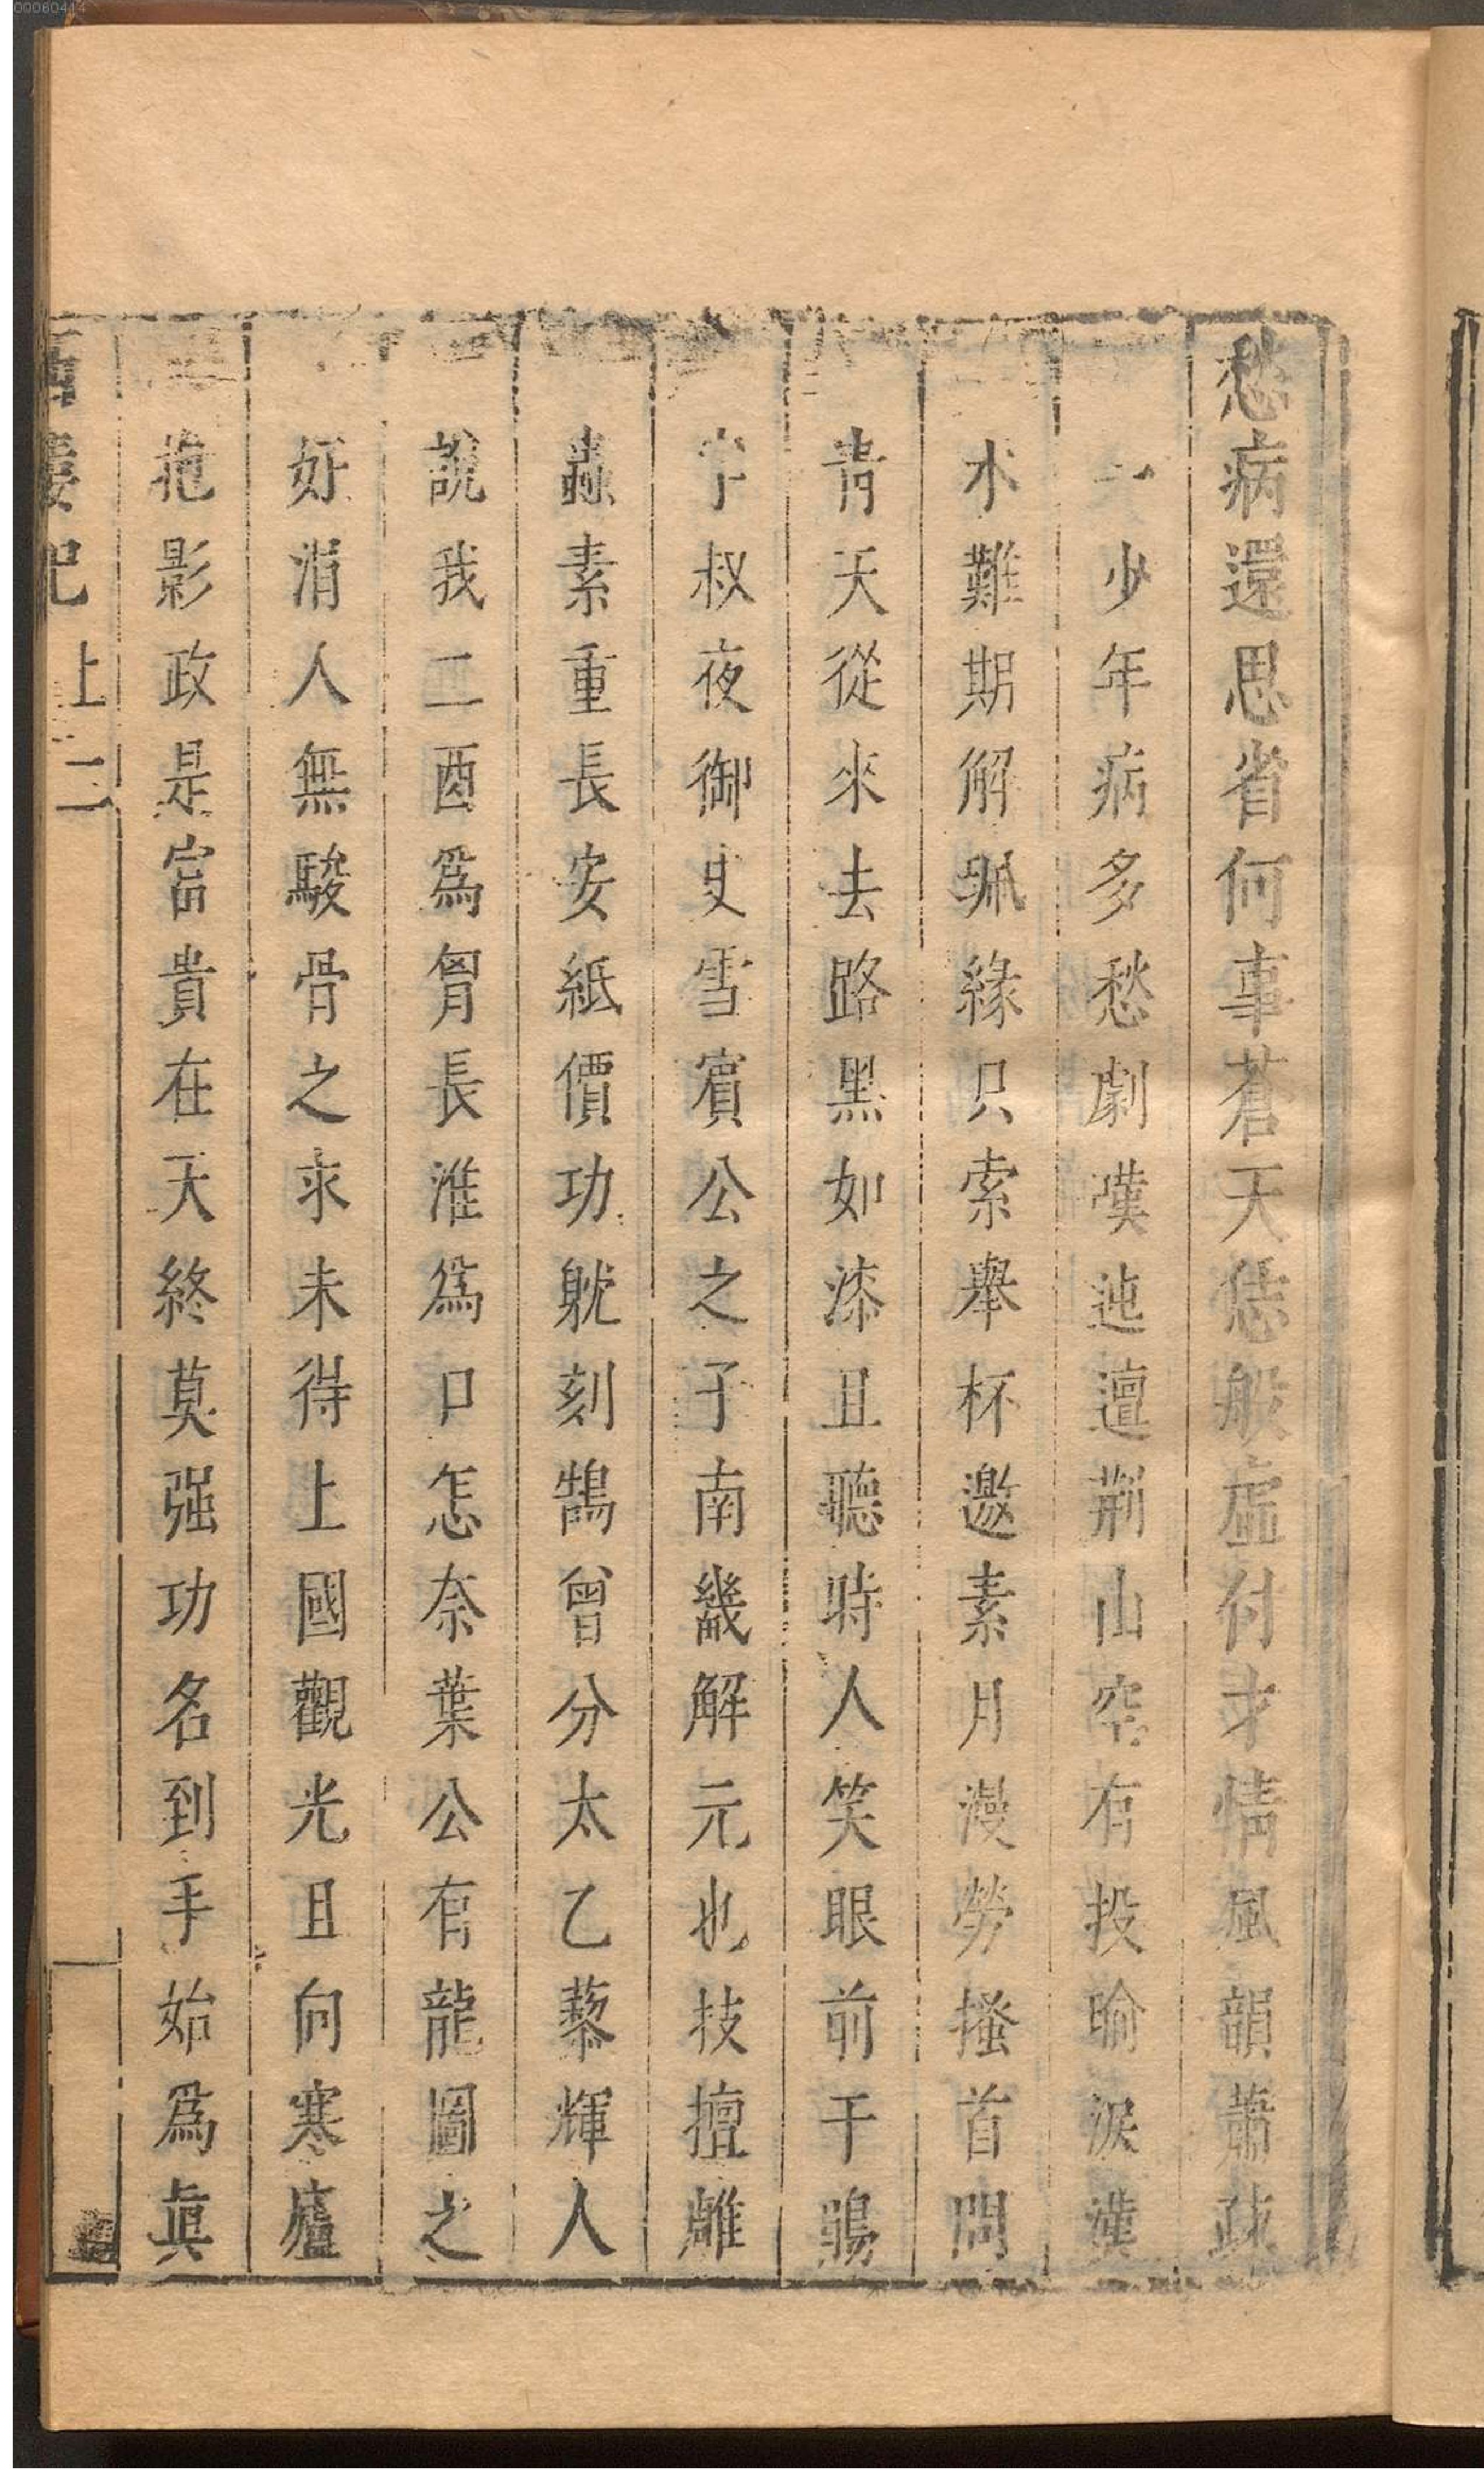 愁病還思省何事蒼天恁般虛付才情風韻蕭疎
少年病多愁劇嘆迍邅荆山空有投瑜淚漢
水難期解珮緣只索舉杯邀素月漫勞搔首問
青天從來去路黑如漆且聽時人笑眼前于鵠
字叔夜御史雪賓公之子南畿解元也技擅雕
蟲素重長安紙價功躭刻鵠曾分太乙藜輝人
說我二酉爲胷長淮爲口怎奈葉公有龍圖之
好涓人無駿骨之求未得上國觀光且向寒廬
抱影政是富貴在天終莫强功名到手始爲眞
西樓記 上 二
00060414